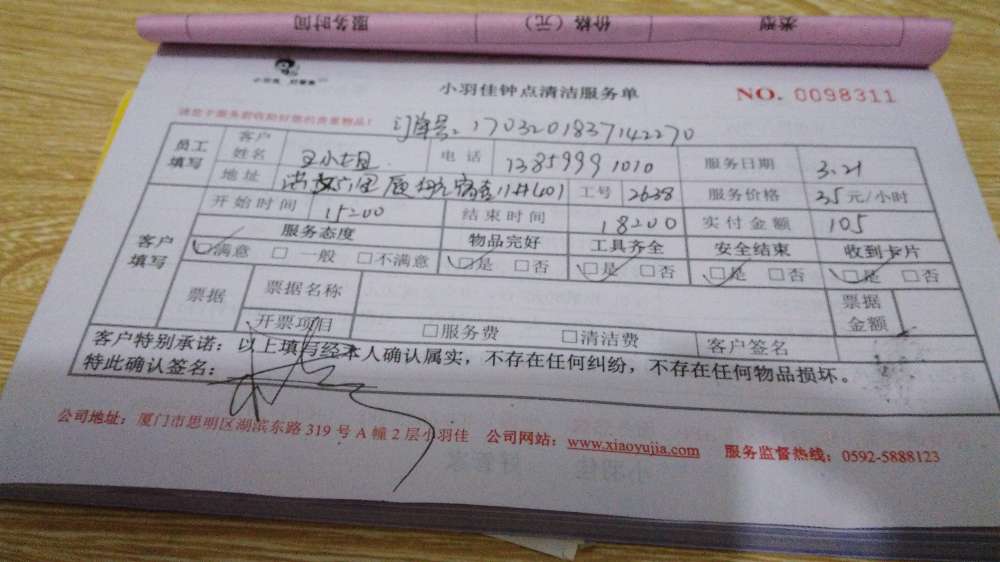 服务时间 价格（元） 类型
小羽佳 好管家
小羽佳钟点清洁服务单 NO. 0098311
请您于服务前收助好您的贵重物品！
订单号: 1703201837142270
员工填写 客户姓名 王小 电话 13859991010 服务日期 3.21
地址 宿舍11#401 工号 2638 服务价格 35元/小时
客户填写 开始时间 15:00 结束时间 18:00 实付金额 105
服务态度 物品完好 工具齐全 安全结束 收到卡片
☑满意 □一般 □不满意 ☑是 □否 ☑是 □否 ☑是 □否 ☑是 □否
票据 票据名称 票据金额
开票项目 □服务费 □清洁费 客户签名
客户特别承诺：以上填写经本人确认属实，不存在任何纠纷，不存在任何物品损坏。
特此确认签名：
公司地址：厦门市思明区湖滨东路 319 号 A 幢 2 层小羽佳 公司网站：www.xiaoyujia.com 服务监督热线：0592-5888123